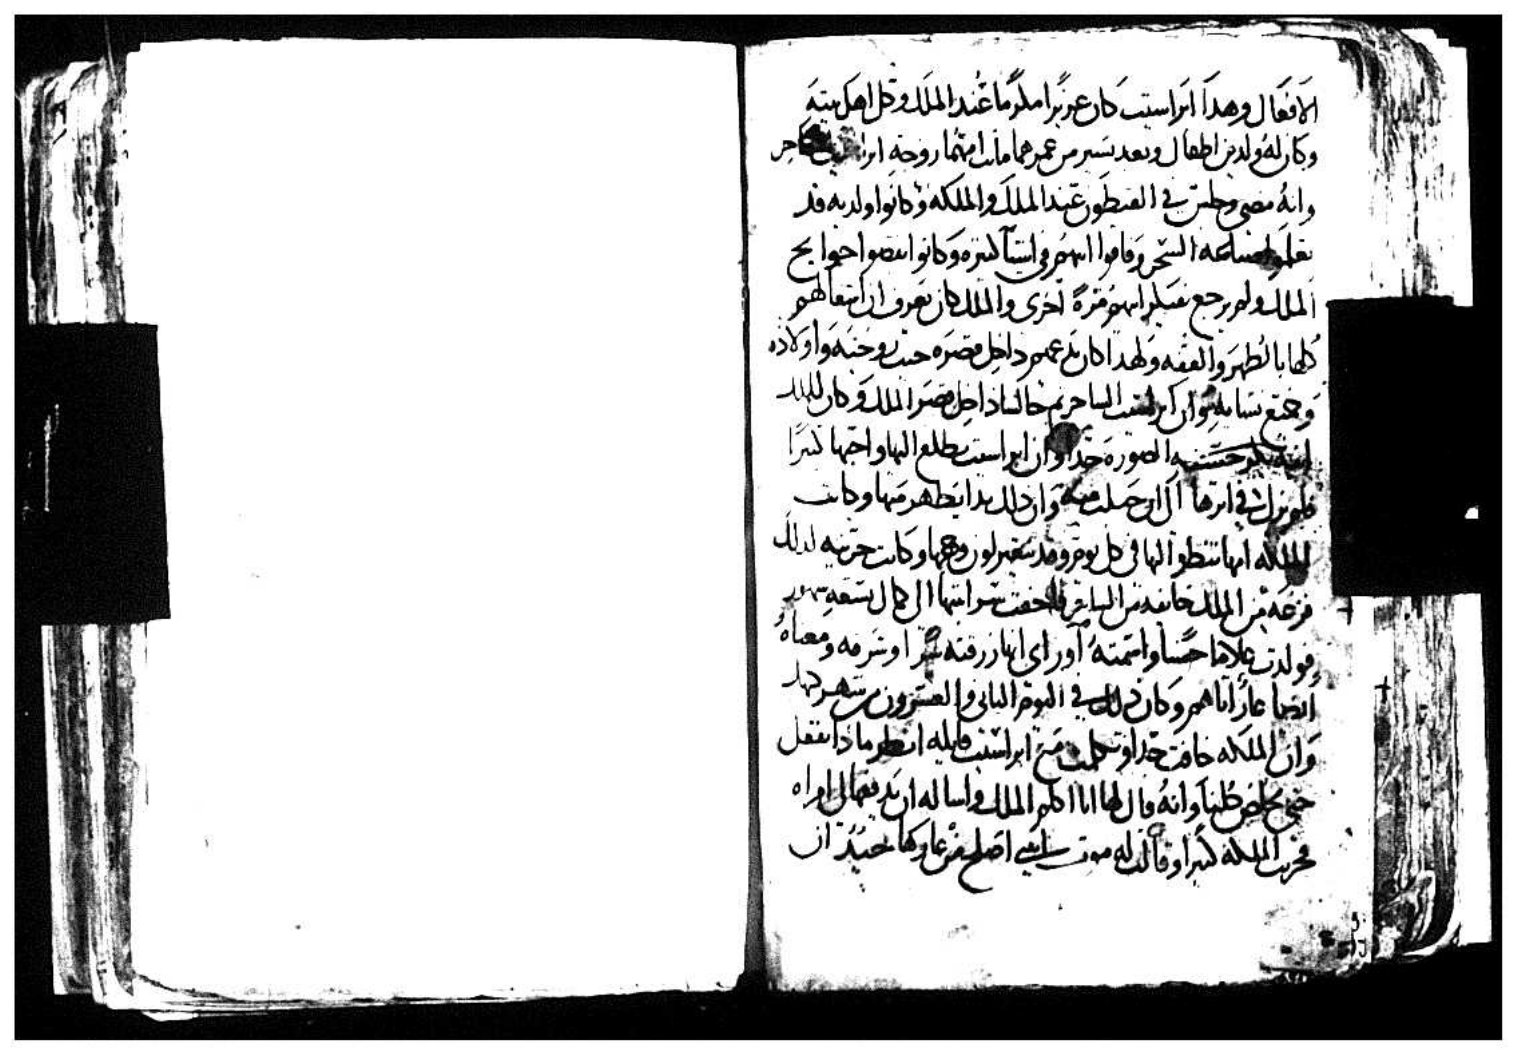 الافعال وهدا ابراسيت كان عزيزا مكرما عند الملك وكل اهل بيته
وكان له ولدين اطفال وبعد يسير من عمرهما ماتت امهما زوجة
وانه مضى وجلس في القيطون عند الملك والملكه وكانوا ولديه قد
تعلموا صناعه السحر وفاقوا ابيهم في اشيا كثيره وكانوا يقضوا حوايج
الملك ولم يرجع يفتكر ابيهم مرة اخرى والملك كان يعرف ان افعالهم
كلها بالطهر والعفه ولهدا كان يدعهم داخل قصره حيث زوجته واولاده
وجميع نسايه وان ابراسيت الساحر نم جالسا داخل قصر الملك وكان للملك
ابنة بكر حسنه الصوره جدا وان ابراسيت يطلع اليها واحبها كثيرا
فلم يزل في اثرها الى ان حبلت منه وان دلك بدا يظهر منها وكانت
الملكه امها تنظر اليها في كل يوم وقد تغير لون وجهها وكانت حزينه لدلك
فزعه من الملك خايفه من الساحر فاخفت سر ابنتها الى كمال تسعه شهور
فولدت غلاما حسنا واسمته اوراى انها زرقته سرا وسرقه ومعناه
ايضا عار اباهم وكان دلك في اليوم الثاني والعشرون من شهر كيهك
وان الملكه خافت جدا وتكلمت مع ابراسيت قايله انظر ما دا نفعل
حتى نخلص كلنا وانه قال لها انا اكلم الملك واساله ان يدفعها لي امراه
فحزنت الملكه كثيرا وقالت له موت ابنتي اصلح من عاركما حينيد ان